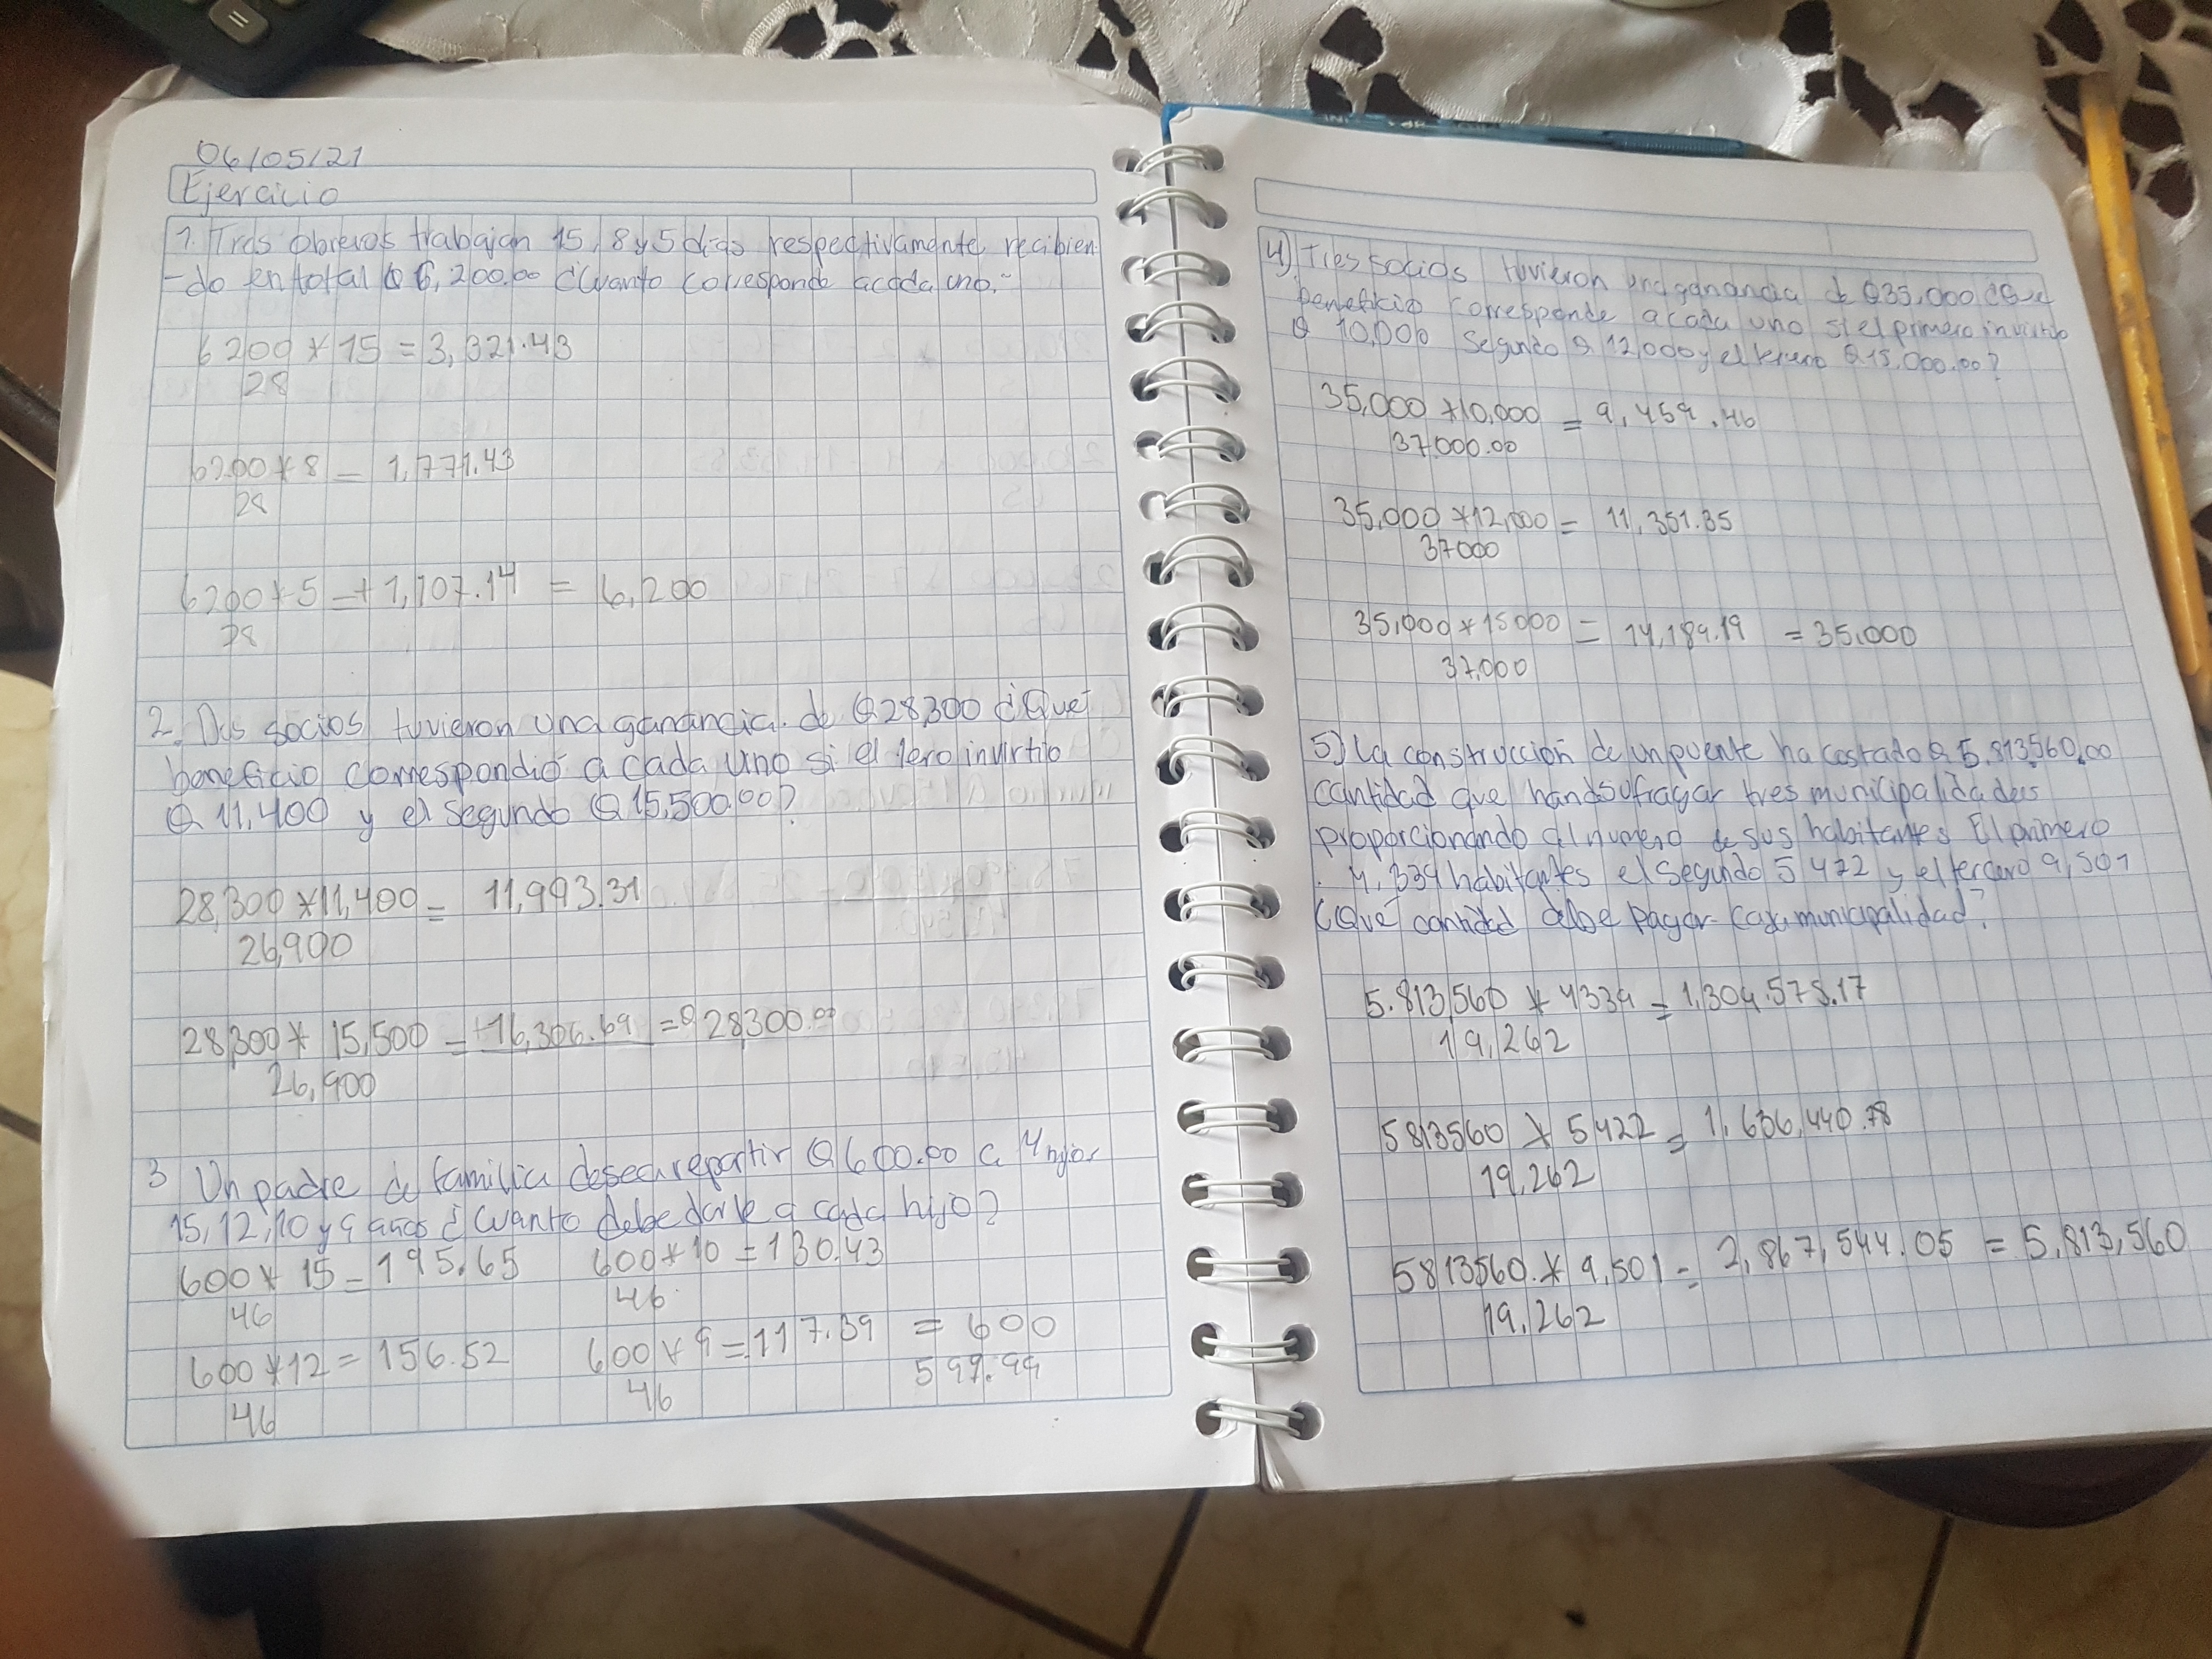 06/05/21
Ejercicio
1. Tres obreros trabajan 15, 8 y 5 dias respectivamente recibien-
-do en total Q 6,200.00 ¿Cuanto corresponde acada uno.-
6200 * 15 = 3,321.43
28
6200 * 8 = 1,771.43
28
6200 * 5 = + 1,107.14 = 6,200
28
2. Dos socios tuvieron una ganancia de Q 28,300 ¿Que
beneficio correspondió a cada uno si el 1ero invirtio
Q 11,400 y el segundo Q 15,500.00?
28,300 * 11,400 = 11,993.31
26,900
28,300 * 15,500 = +16,306.69 = Q 28,300.00
26,900
3 Un padre de familia desea repartir Q 600.00 a 4 hijos
15, 12, 10 y 9 años ¿Cuanto debe darle a cada hijo?
600 * 15 = 195.65 600 * 10 = 130.43
46 46
600 * 12 = 156.52 600 * 9 = 117.39 = 600
46 46 599.99
4) Tres socios tuvieron una ganancia de Q 35,000 ¿Que
beneficio corresponde a cada uno si el primero invirtio
Q 10,000 Segundo Q 12,000 y el tercero Q 15,000.00?
35,000 * 10,000 = 9,459.46
37,000.00
35,000 * 12,000 = 11,351.35
37000
35,000 * 15000 = 14,189.19 = 35,000
37,000
5) La construcción de un puente ha costado Q 5.813,560.00
cantidad que han de sufragar tres municipalidades
proporcionando al numero de sus habitantes El primero
4,339 habitantes el segundo 5 422 y el tercero 9,501
¿Que cantidad debe pagar cada municipalidad?
5.813,560 * 4339 = 1,309.575.17
19,262
5813560 * 5422 = 1,636,440.78
19,262
5813560. * 9,501 = 2,867,544.05 = 5,813,560
19,262